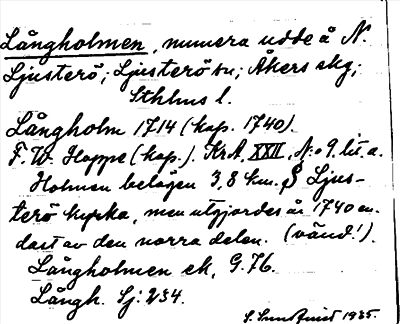 Långholmen, numera udde å N.
Ljusterö; Ljusterö sn; Åkers skg;
Sthlms l.
Långholm 1714 (kop. 1740).
F. W. Hoppe (kop.). Kr.A. XXII, N:o 9. lit. a.
Holmen belägen 3,8 km. S Ljus-
terö kyrka, men utgjordes år 1740 en-
dast av den norra delen. (vänd!).
Långholmen ek, G. 76.
Långh. Sj: 234.
S. Sundquist 1935.